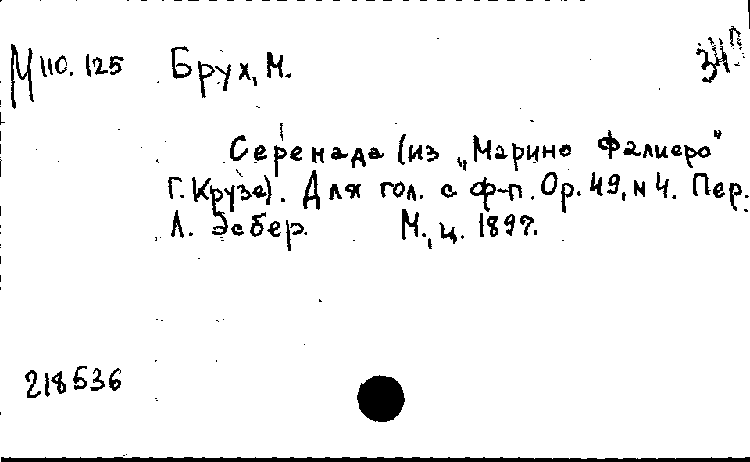 М 110.125 Брух, М.
Серенада (из „Марино Фалиеро"
Г. Крузе). Для гол. с ф-п. Op. 49, н 4. Пер.
Л. Эсбер. М., ц. 1897.
218536